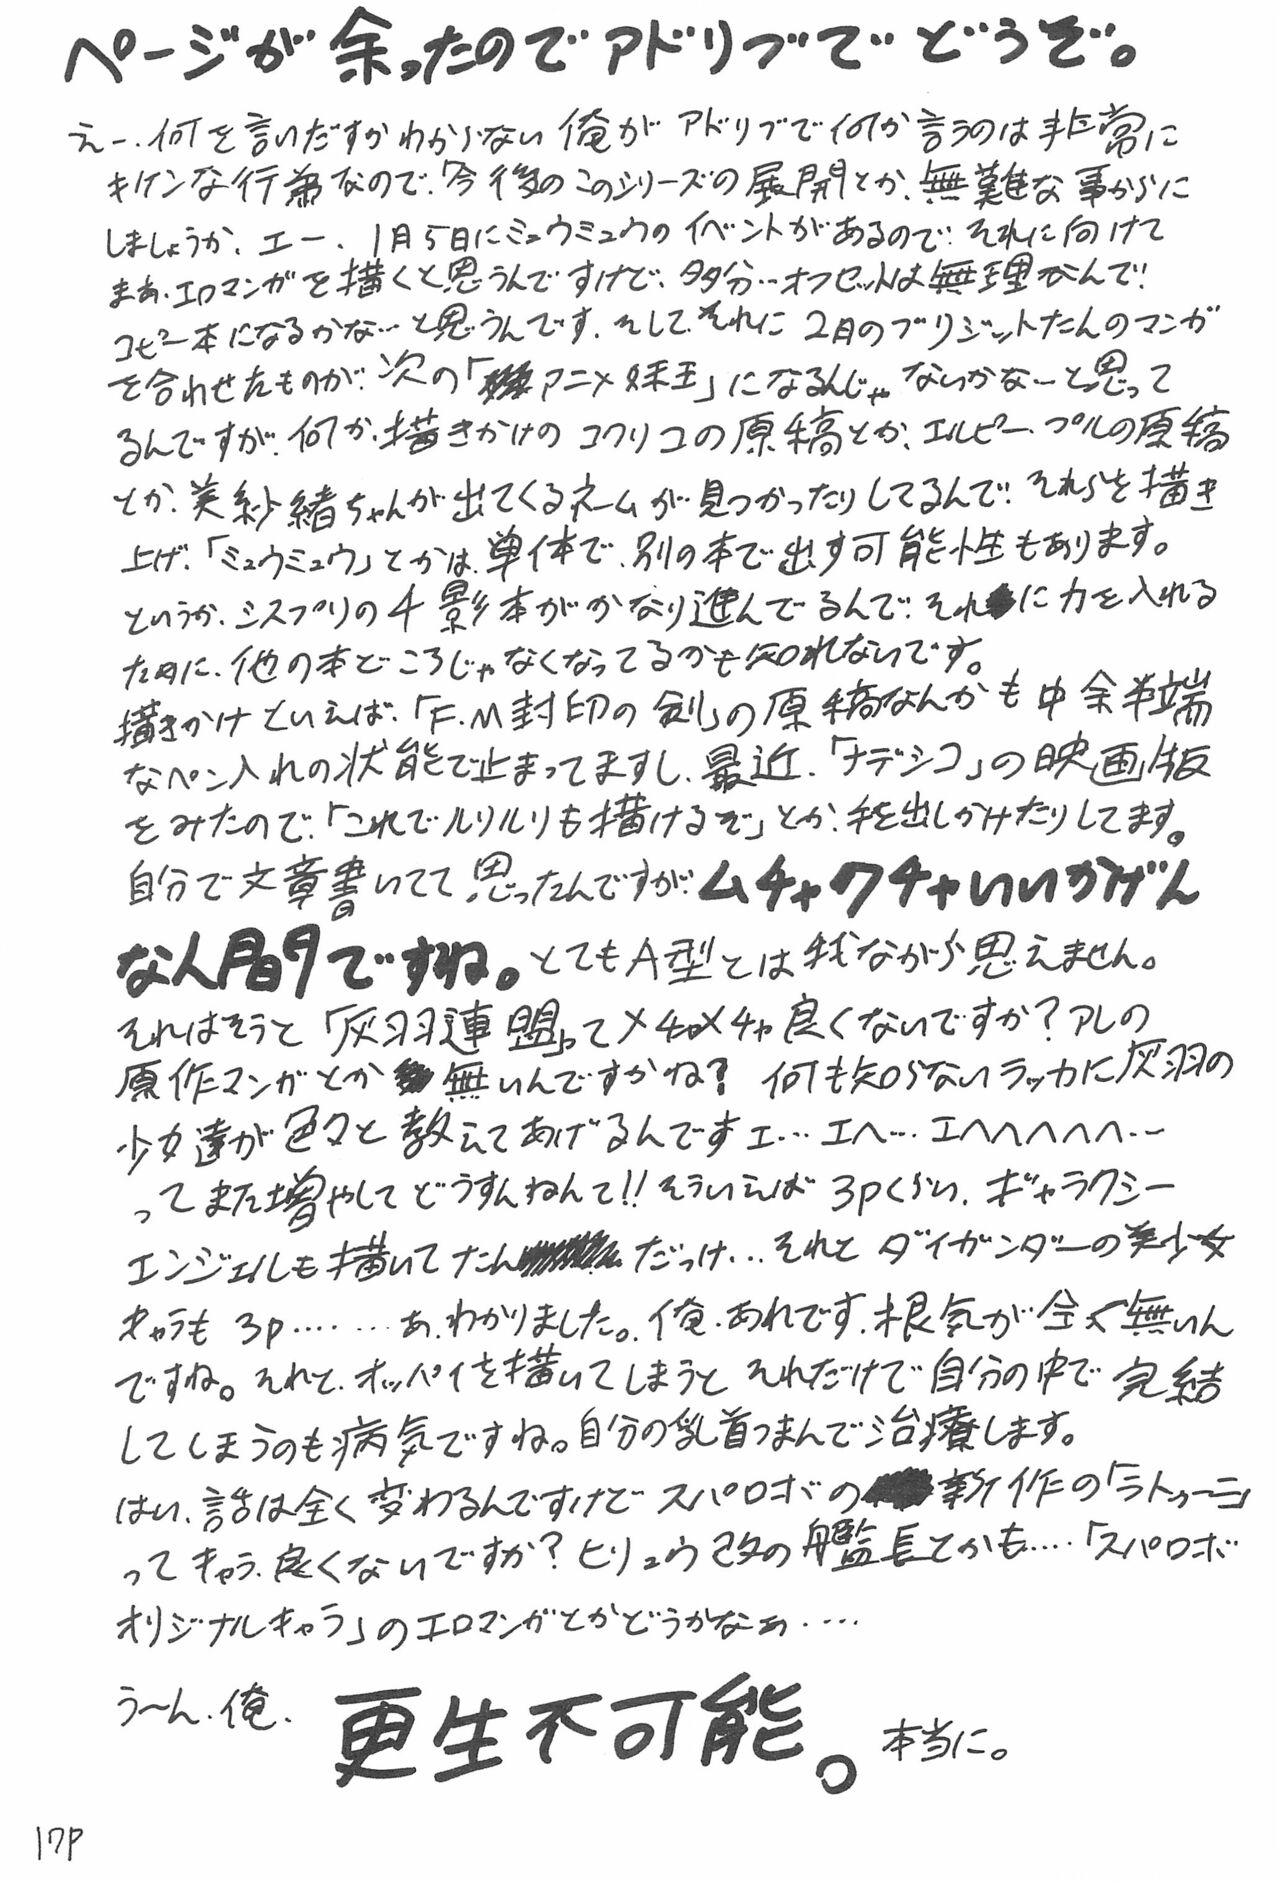 ページが余ったのでアドリブでどうぞ。
えー、何を言いだすかわからない俺がアドリブで何か言うのは非常に
キケンな行為なので、今後のこのシリーズの展開とか、無難な事からに
しましょうか、エー、1月5日にミュウミュウのイベントがあるので、それに向けて
まあ、エロマンガを描くと思うんですけど、多分…オフセットは無理なんで、
コピー本になるかな…と思うんです、そして、それに2月のブリジットたんのマンガ
を合わせたものが、次の「アニメ妹王」になるんじゃないかなーと思って
るんですが、何か、描きかけのコクリコの原稿とか、エルピー・プルの原稿
とか、美紗緒ちゃんが出てくるネームが見つかったりしてるんで、それらを描き
上げ、「ミュウミュウ」とかは、単体で、別の本で出す可能性もあります。
というか、シスプリの千影本がかなり進んでるんで、それに力を入れる
ために、他の本どころじゃなくなってるかも知れないです。
描きかけといえば、「F.M封印の剣」の原稿なんかも中余半端
なペン入れの状態で止まってますし、最近、「ナデシコ」の映画版
をみたので、「これでルリルリも描けるぞ」とか、手を出しかけたりしてます。
自分で文章書いてて思ったんですが、ムチャクチャいいかげん
な人間ですね。とてもA型とは我ながら思えません。
それはそうと「灰羽連盟」ってメチャメチャ良くないですか?アレの
原作マンガとか無いんですかね?何も知らないラッカに灰羽の
少女達が色々と教えてあげるんですエ…エヘ…エヘヘヘヘヘ…
ってまた増やしてどうすんねんて!!そういえば3pくらい、ギャラクシー
エンジェルも描いてたんだっけ…それとダイガンダーの美少女
キャラも3p……あ、わかりました。俺、あれです、根気が全く無いん
ですね。それと、オッパイを描いてしまうとそれだけで自分の中で完結
してしまうのも病気ですね。自分の乳首つまんで治療します。
はい、話は全く変わるんですけどスパロボの新作の「ラトゥーニ」
ってキャラ、良くないですか?ヒリュウ改の艦長とかも…「スパロボ
オリジナルキャラ」のエロマンガとかどうかなぁ…
う〜ん、俺、更生不可能。本当に。
17P